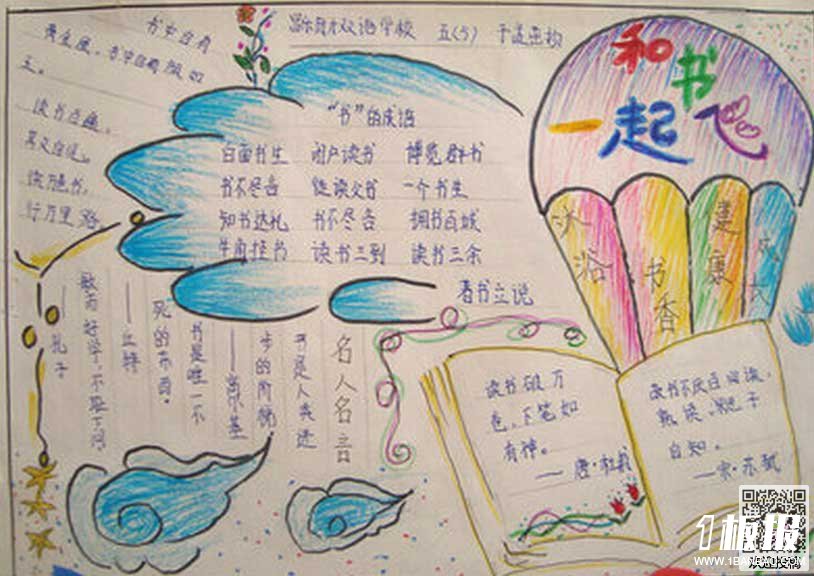 书中自有
黄金屋,书中自有颜如
玉。
读书百遍,
其义自见。
读万卷书,
行万里路。
双语学校 五(5)
和书
一起飞
“书”的成语
白面书生 闭户读书 博览群书
书不尽言 徒读父书 一介书生
知书达礼 书不尽言 拥书百城
牛角挂书 读书三到 读书三余
著书立说
沐浴
书香
健康
成长
名人名言
书是人类进
步的阶梯
——高尔基
书是唯一不
死的东西。
——丘特
敏而好学,不耻下问
——孔子
读书破万
卷,下笔如
有神。
——唐·杜甫
故书不厌百回读,
熟读 思子
自知。
——宋·苏轼
1板报
WWW.1BANBAO.COM